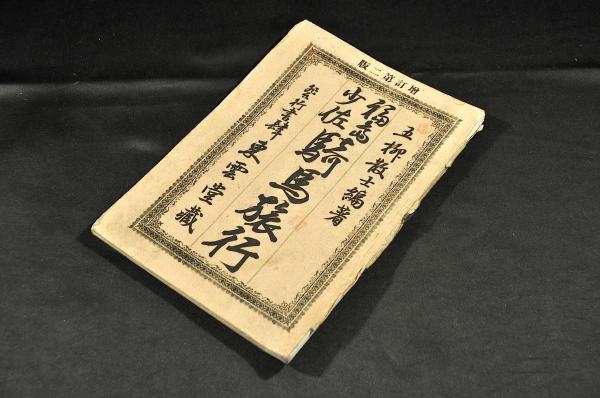 増訂第二版
五柳散士編著
福島少佐騎馬旅行
發行書肆東雲堂藏